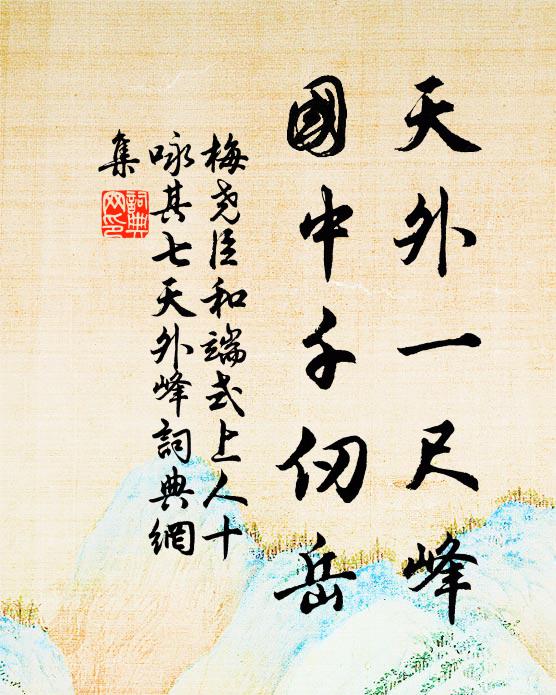 天外一尺峰
國中千仞岳
梅堯臣和端式上人十
咏其七天外峰詞典網
集
詞典
网印